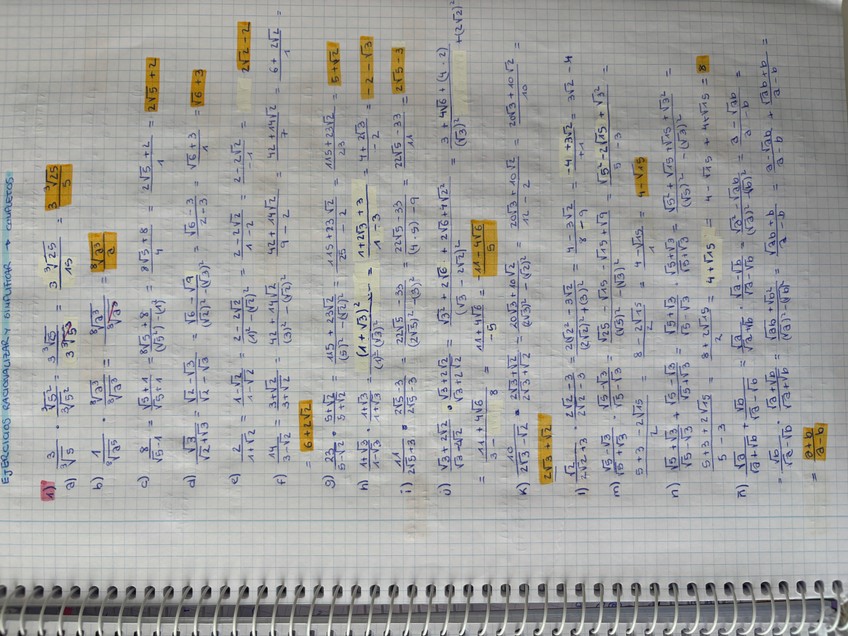 EJERCICIOS RACIONALIZAR Y SIMPLIFICAR → COMPLETOS
1)
a) 3/∛5 · ∛5²/∛5² = 3∛25/3∛5³ = 3∛25/15 = 3∛25/5
b) 1/⁸√a⁵ · ⁸√a³/⁸√a³ = ⁸√a³/⁸√a⁸ = ⁸√a³/a
c) 8/√5-1 = √5+1/√5+1 = 8√5+8/(√5²)-(1)² = 8√5+8/4 = 2√5+2/1 = 2√5+2
d) √3/√2+√3 = √2-√3/√2-√3 = √6-√9/(√2)²-(√3)² = √6-3/2-3 = √6+3/1 = √6+3
e) 2/1+√2 = 1-√2/1-√2 = 2-2√2/(1)²-(√2)² = 2-2√2/1-2 = 2-2√2/-1 = 2√2-2
f) 14/3-√2 = 3+√2/3+√2 = 42+14√2/(3)²-(√2)² = 42+14√2/9-2 = 42+14√2/7 = 6+2√2/1 =
= 6+2√2
g) 23/5-√2 · 5+√2/5+√2 = 115+23√2/(5)²-(√2)² = 115+23√2/25-2 = 115+23√2/23 = 5+√2
h) 1+√3/1-√3 · 1+√3/1+√3 = (1+√3)²/(1)²-(√3)² = 1+2√3+3/1-3 = 4+2√3/-2 = -2-√3
i) 11/2√5+3 · 2√5-3/2√5-3 = 22√5-33/(2√5)²-(3)² = 22√5-33/(4·5)-9 = 22√5-33/11 = 2√5-3
j) √3+2√2/√3-2√2 · √3+2√2/√3+2√2 = √3²+2√6+2√6+4√2²/(√3-2√2)² = 3+4√6+(4·2)/(√3)² +(2√2)²
= 11+4√6/3-8 = 11+4√6/-5 = -11-4√6/5
k) 10/2√3-√2 · 2√3+√2/2√3+√2 = 20√3+10√2/(2√3)²-(√2)² = 20√3+10√2/12-2 = 20√3+10√2/10 =
2√3+√2
l) √2/2√2+3 · 2√2-3/2√2-3 = 2√2²-3√2/(2√2)²+(3)² = 4-3√2/8-9 = -4+3√2/+1 = 3√2-4
m) √5-√3/√5+√3 · √5-√3/√5-√3 = √25-√15-√15+√9/(√5)²-(√3)² = √5²-2√15+√3²/5-3 =
5+3-2√15/2 = 8-2√15/2 = 4-√15/1 = 4-√15
n) √5+√3/√5-√3 + √5-√3/√5+√3 = √5+√3/√5-√3 · √5+√3/√5+√3 = √5²+√15+√15+√3²/(√5)²-(√3)² =
5+3+2√15/5-3 = 8+2√15/2 = 4+√15 = 4-√15+4+√15 = 8
ñ) √a/√a+√b + √b/√a-√b = √a/√a+√b · √a-√b/√a-√b = √a²-√ab/(√a)²-(√b)² = a-√ab/a-b =
= √b/√a-√b · √a+√b/√a+√b = √ab+√b²/(√a)²-(√b)² = √ab+b/a-b = a-√ab/a-b + √ab+b/a-b =
= a+b/a-b